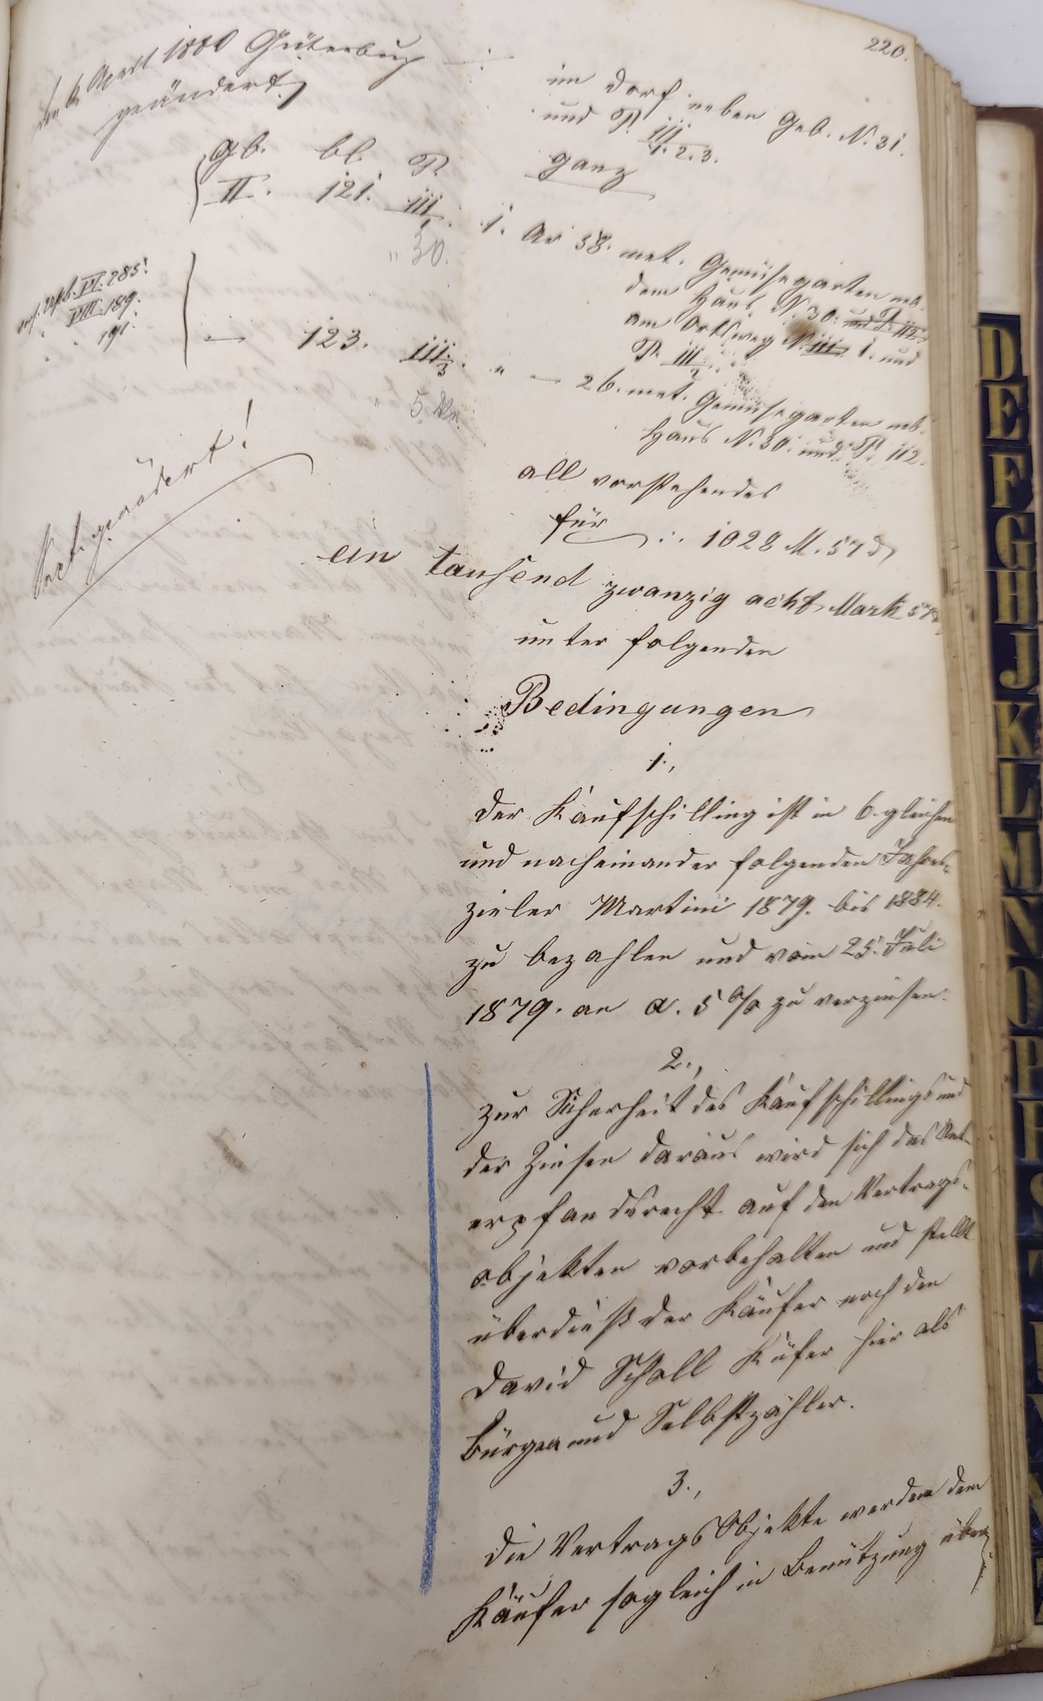 220.
den 6. April 1880 Güterbuch
geändert.
im Dorf neben Geb. N. 31.
und P. III
1. 2. 3.
ganz
Gb. bl. P.
II. 121. III
" 30.
1. Ar 38. met. Gemüsegarten neb.
dem Haus N. 30.
am Ortsweg N. 1. und
P. III
VI. 285.
VIII. 189.
" " 191.
— 123. III/3. " — 26. met. Gemüsegarten neb.
Haus N. 30. und P. 112.
" 5
all vorstehendes
für 1028 M. 57 ₰
geändert!
ein tausend zwanzig acht Mark 57
unter folgenden
Bedingungen
1.,
Der Kaufschilling ist in 6 gleichen
und nacheinander folgenden Jahres-
zieler Martini 1879. bis 1884.
zu bezahlen und vom 25. Juli
1879. an a. 5 % zu verzinsen.
2.,
Zur Sicherheit des Kaufschillings und
der Zinsen daraus wird sich das Unt-
erpfandsrecht auf den Vertrags-
objekten vorbehalten und stellt
überdieß der Käufer noch den
David Scholl Küfer hier als
Bürgen und Selbstzahler.
3.,
Die Vertrags Objekte werden dem
Käufer sogleich in Benützung über